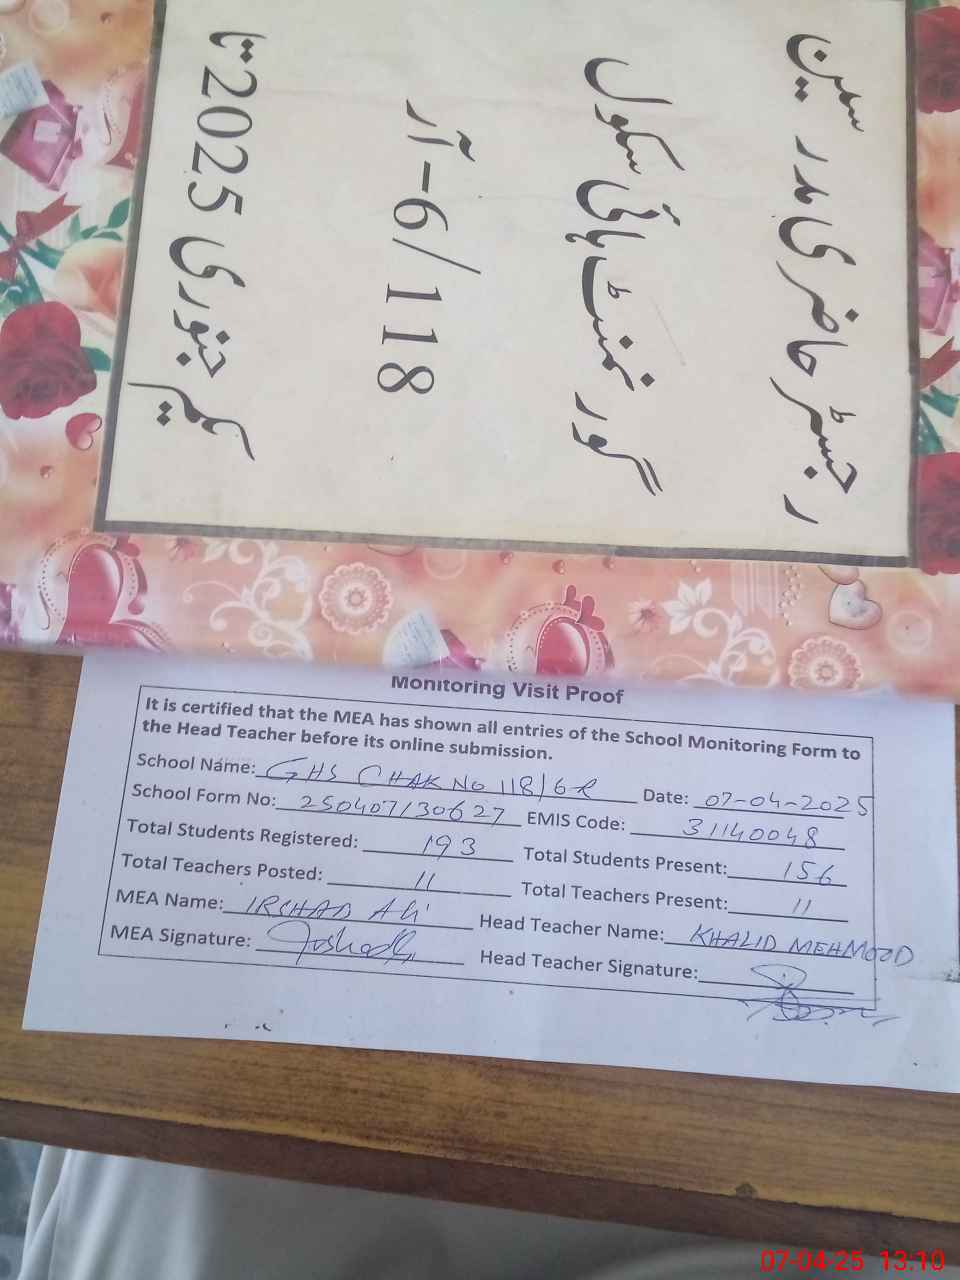 رجسٹر حاضری مدرسین
گورنمنٹ ہائی سکول
118/6-آر
یکم جنوری 2025 تا
Monitoring Visit Proof
It is certified that the MEA has shown all entries of the School Monitoring Form to
the Head Teacher before its online submission.
School Name: GHS CHAK No 118/6R Date: 07-04-2025
School Form No: 250407130627 EMIS Code: 31140048
Total Students Registered: 193 Total Students Present: 156
Total Teachers Posted: 11 Total Teachers Present: 11
MEA Name: IRSHAD Ali Head Teacher Name: KHALID MEHMOOD
MEA Signature: Irshad Head Teacher Signature:
07-04-25 13:10